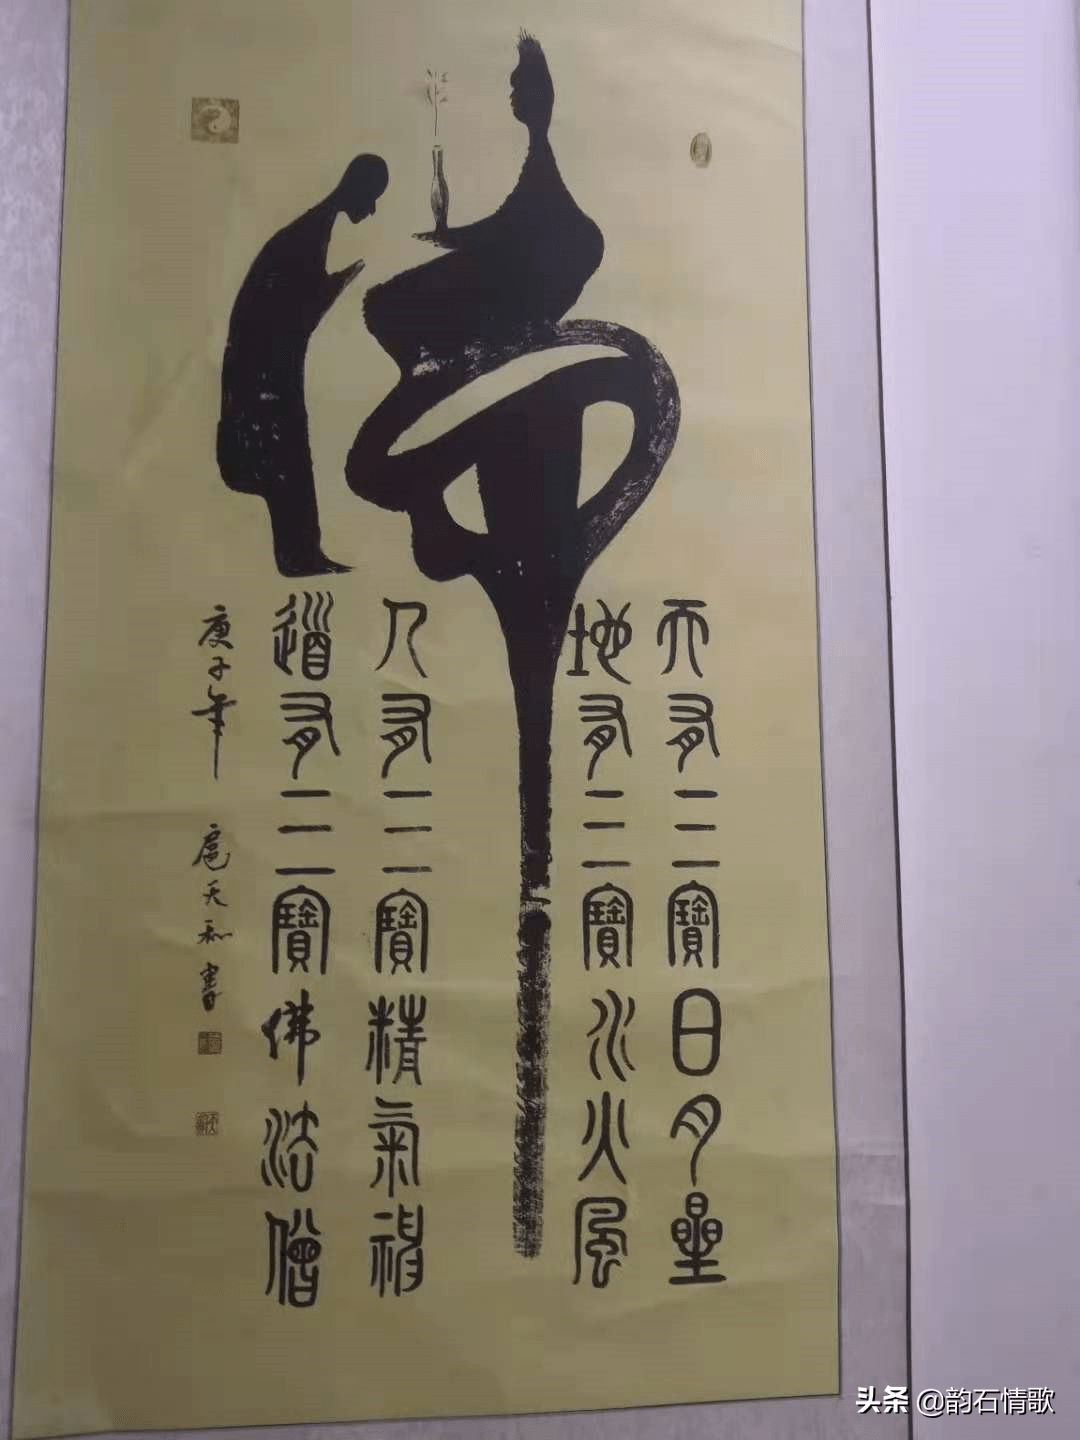 佛
天有三寶日月星
地有三寶水火風
人有三寶精氣神
道有三寶佛法僧
庚子年 扈天和書
头条 @韵石情歌